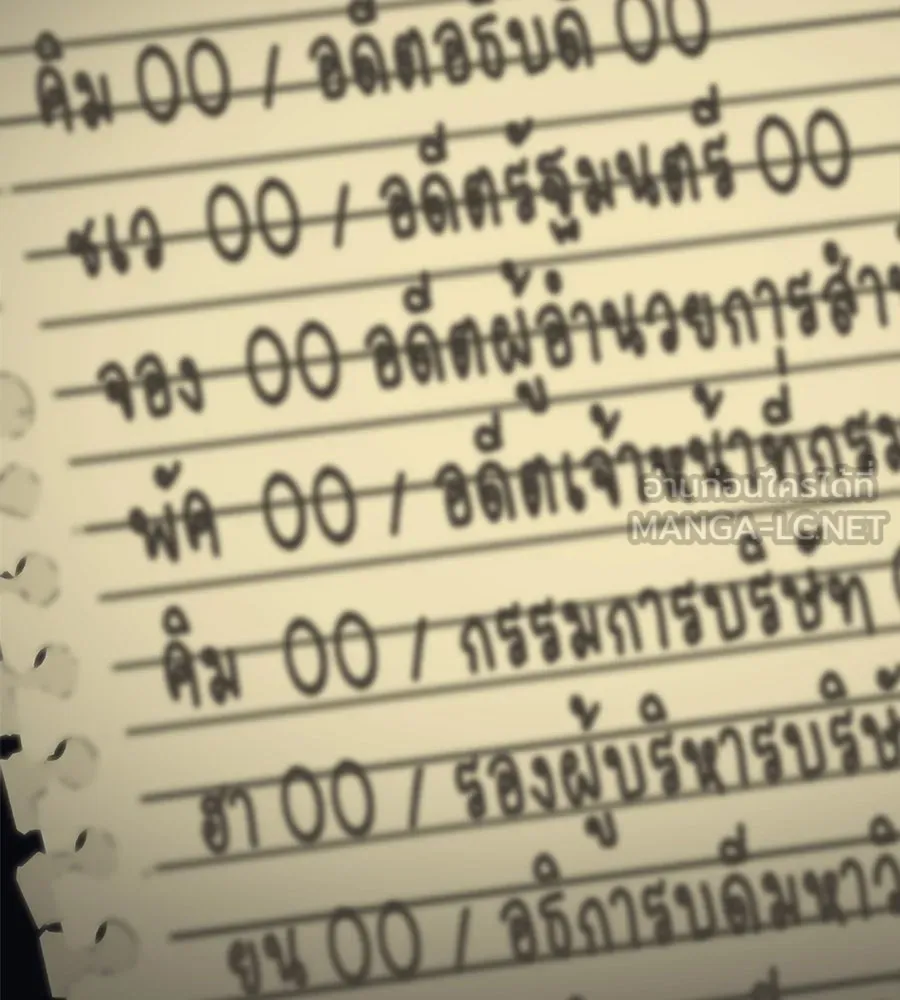 คิม OO / อดีตอธิบดี OO
ชเว OO / อดีตรัฐมนตรี OO
จอง OO อดีตผู้อำนวยการสำ
พัค OO / อดีตเจ้าหน้าที่กรม
อ่านก่อนใครได้ที่
MANGA-LC.NET
คิม OO / กรรมการบริษัท
ฮา OO / รองผู้บริหารบริษั
ยุน OO / อธิการบดีมหาวิ